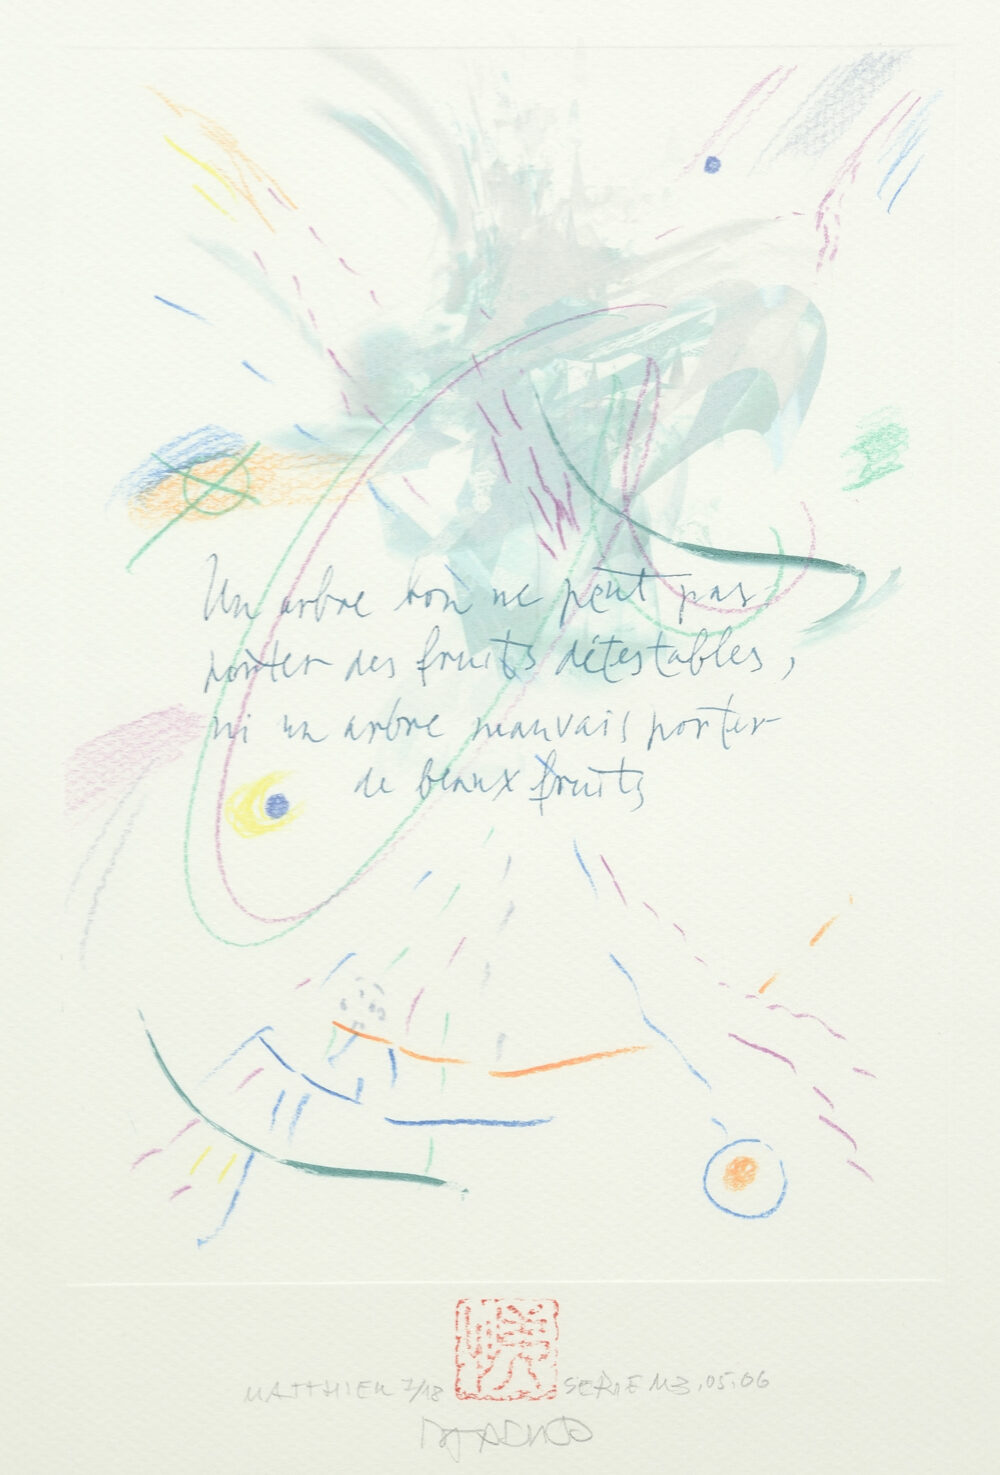 Un arbre bon ne peut pas
porter des fruits détestables,
ni un arbre mauvais porter
de beaux fruits
MATTHIEU 7/18
SERIE M3.05.06